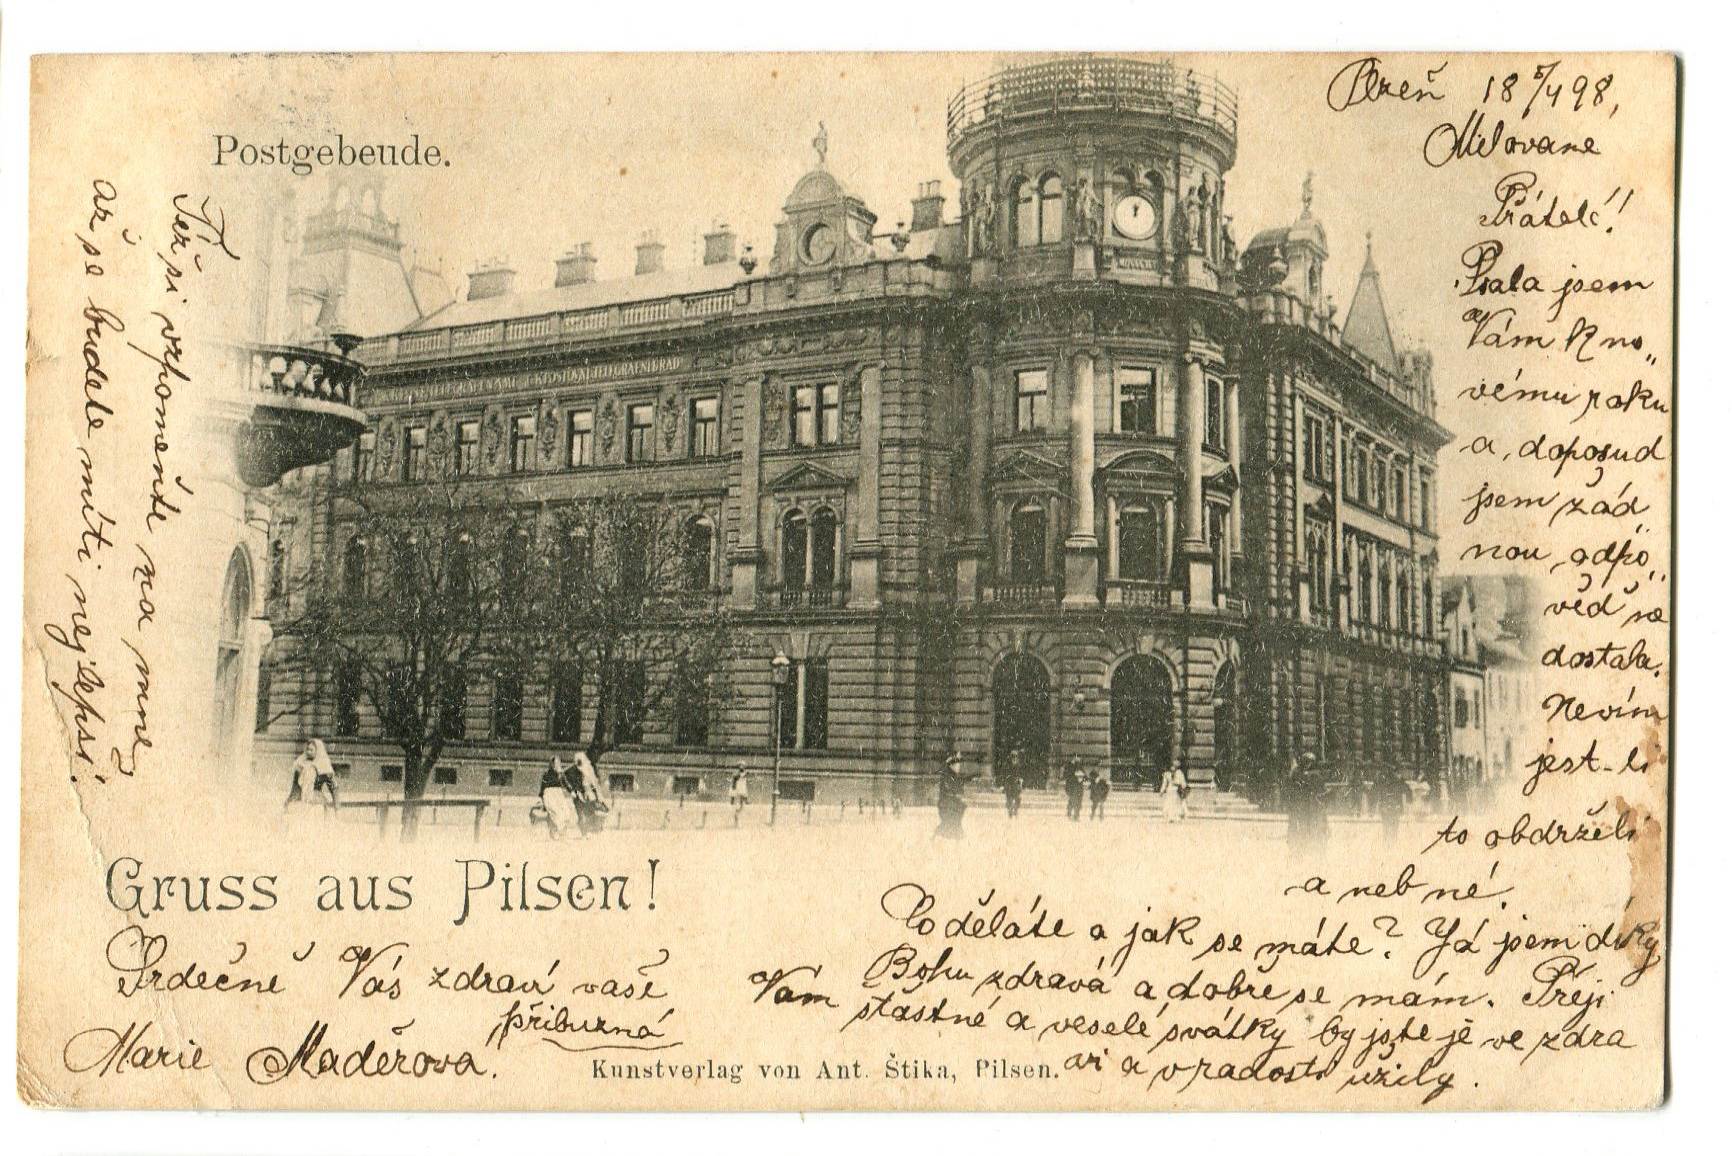 Postgebeude.
Plzeň 18 5/4 98,
Milované
Přátelé!
Psala jsem
Vám k no„
vému roku
a, doposud
jsem žád„
nou odpo„
věď ne
dostala.
Nevím
jest-li
to obdrželi
a neb né.
Co děláte a jak se máte? Já jsem díky
Bohu zdravá a dobře se mám. Přeji
Vám šťastné a veselé svátky by jste jě ve zdra
ví a v radosti užily.
Gruss aus Pilsen!
Srdečně Vás zdraví vaše
příbuzná
Marie Maděrova.
Kunstverlag von Ant. Štika, Pilsen.
Též si vzpomeňte na mne,
až se budete míti nejlepší.